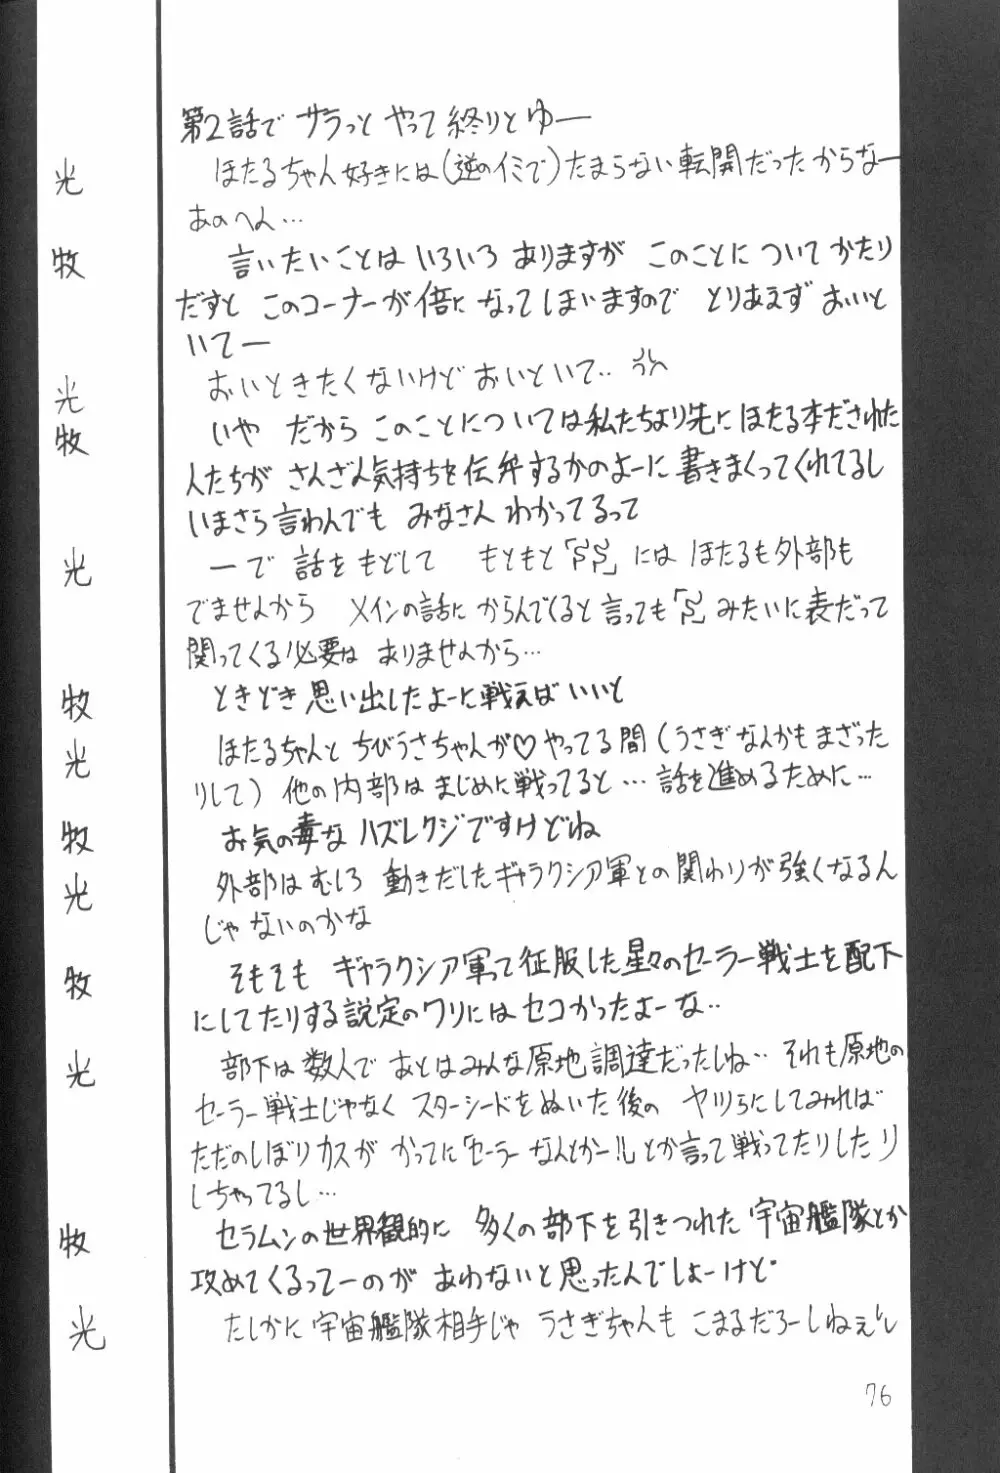 第2話で サラっと やって 終りとゆー
光 ほたるちゃん好きには(逆のイミで)たまらない転開だったからなー
あのへん…
牧 言いたいことは いろいろ ありますが このことに ついて かたり
だすと このコーナーが倍に なってしまいますので とりあえず おいと
いてー
光 おいときたくないけど おいといて‥
牧 いや だから このことについては私たちより先に ほたる本だされた
人たちが さんざん気持ちを伝弁するかのよーに 書きまくってくれてるし
いまさら言わんでも みなさん わかってるって
光 ーで 話を もどして もともと「SS」には ほたるも外部も
でませんから メインの話に からんでくると言っても「S」みたいに表だって
関ってくる必要は ありませんから…
牧 ときどき 思い出したよーに戦えば いいと
光 ほたるちゃんと ちびうさちゃんが♡やってる間(うさぎなんかも まざった
りして) 他の内部は まじめに戦ってると… 話を進めるために…
牧 お気の毒な ハズレクジですけどね
光 外部は むしろ 動きだしたギャラクシア軍との関わりが強くなるん
じゃないのかな
牧 そもそも ギャラクシア軍って征服した星々のセーラー戦士を配下
にしてたりする説定のワリには セコかったよーな‥
光 部下は数人で あとはみんな原地調達だったしね‥ それも原地の
セーラー戦士じゃなく スターシードをぬいた後の ヤツらにしてみれば
ただのしぼりカスが かってに「セーラー なんとかー!!」とか言って戦ってたりしたり
しちゃってるし…
牧 セラムンの世界観的に 多くの部下を引きつれた 宇宙艦隊とか
攻めてくるってーのが あわないと思ったんでしょーけど
光 たしかに 宇宙艦隊相手じゃ うさぎちゃんも こまるだろーしねぇ
76